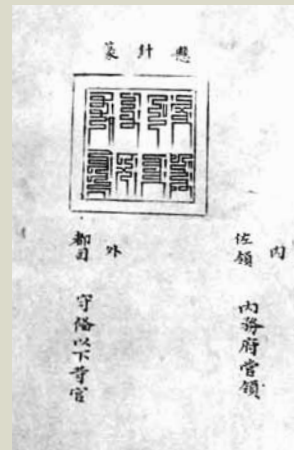 懸針篆
內
佐領
內務府管領
外
都司
守備以下等官